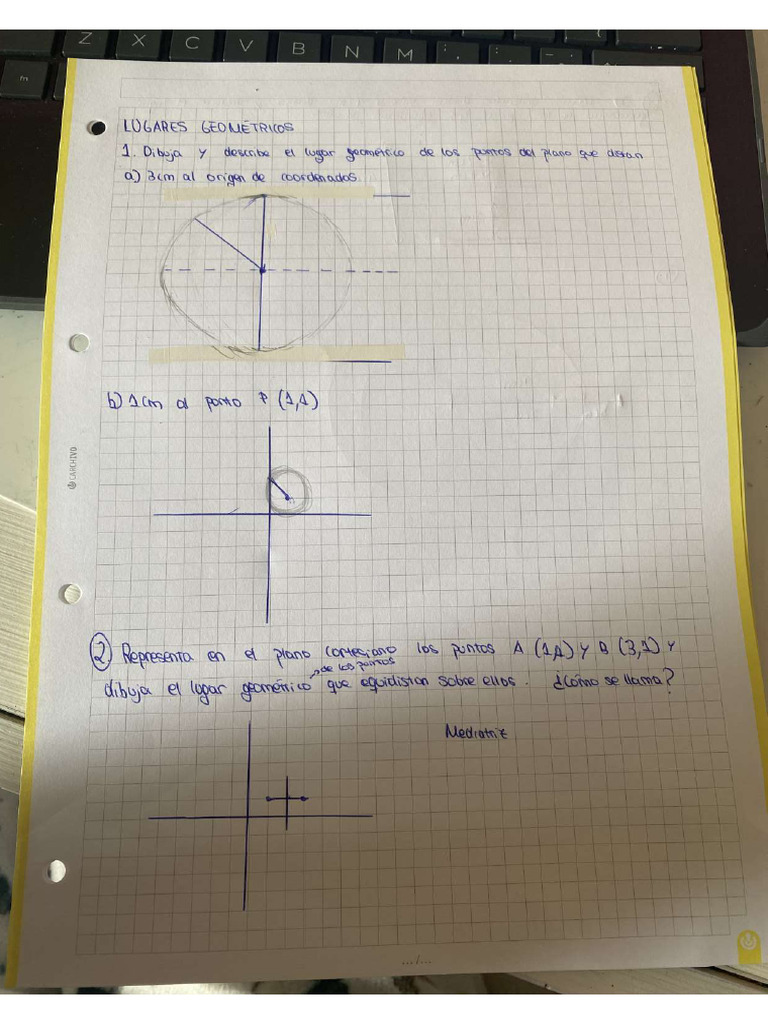 Z X C V B N M
LUGARES GEOMÉTRICOS
1. Dibuja y describe el lugar geométrico de los puntos del plano que distan
a) 3cm al origen de coordenadas.
b) 1cm al punto P (1,1)
CARCHIVO
2 Representa en el plano cartesiano los puntos A (1,1) y B (3,1) y
de los puntos
dibuja el lugar geométrico que equidistan sobre ellos. ¿Cómo se llama?
Mediatriz
.../...